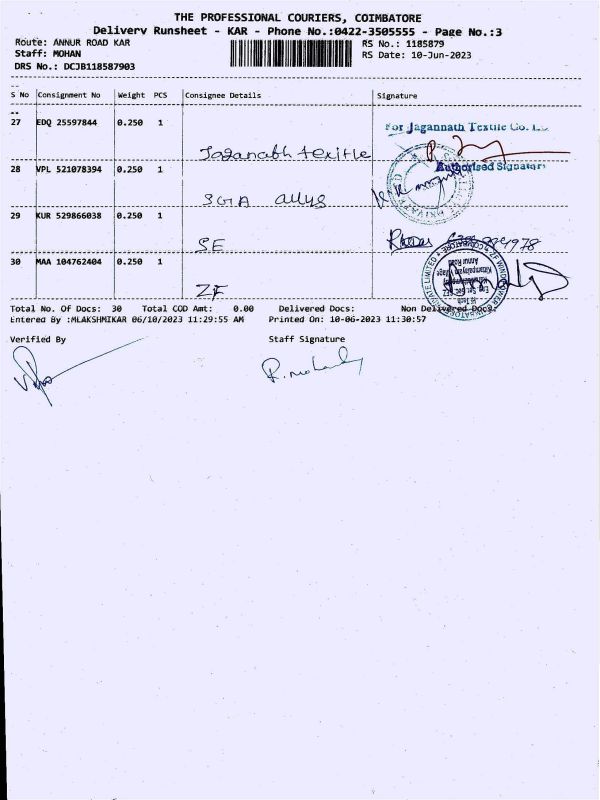 THE PROFESSIONAL COURIERS, COIMBATORE
Delivery Runsheet - KAR - Phone No.:0422-3505555 - Page No.:3
Route: ANNUR ROAD KAR RS No.: 1185879
Staff: MOHAN RS Date: 10-Jun-2023
DRS No.: DCJB118587903
S No Consignment No Weight PCS Consignee Details Signature
27 EDQ 25597844 0.250 1
For Jagannath Textile Co.
Jaganath texitle
Authorised Signatory
28 VPL 521078394 0.250 1
SGA alлys
29 KUR 529866038 0.250 1
SE
30 MAA 104762404 0.250 1
ZF
Total No. Of Docs: 30 Total COD Amt: 0.00 Delivered Docs: Non Delivered Docs:
Entered By :MLAKSHMIKAR 06/10/2023 11:29:55 AM Printed On: 10-06-2023 11:30:57
Verified By Staff Signature
R. mohan